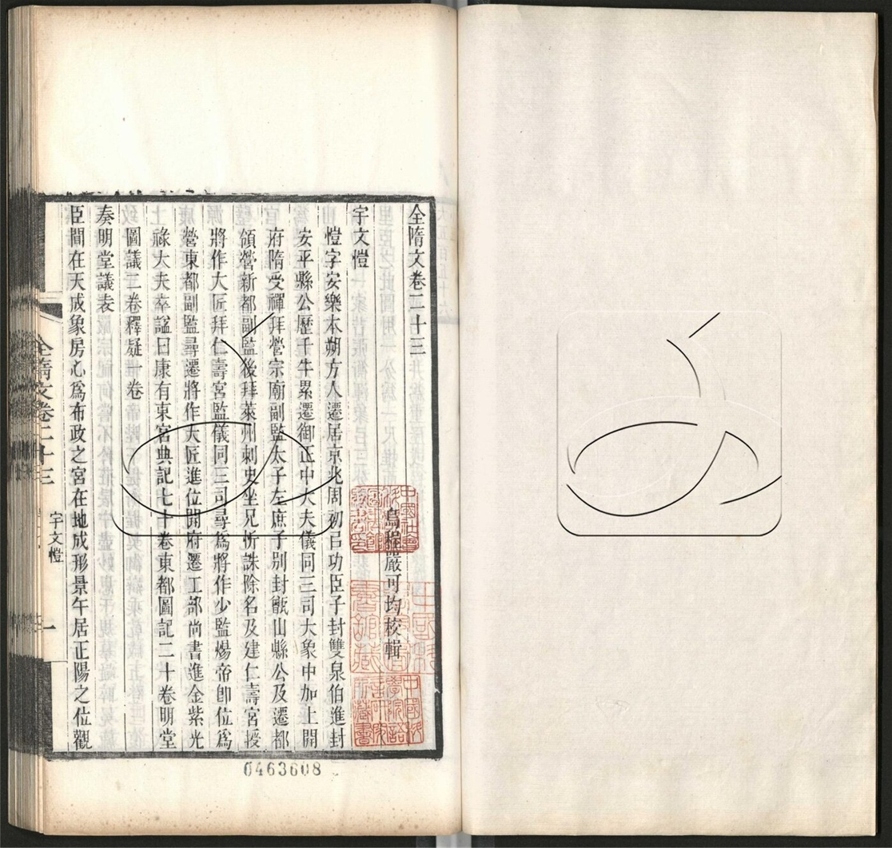 全隋文卷二十三
烏程嚴可均校輯
宇文愷
愷字安樂本朔方人遷居京兆周初㠯功臣子封雙泉伯進封
安平縣公歷千牛累遷御正中大夫儀同三司大象中加上開
府隋受禪拜營宗廟副監太子左庶子別封甑山縣公及遷都
領營新都副監後拜萊州刺史坐兄忻誅除名及建仁壽宮授
將作大匠拜仁壽宮監儀同三司尋爲將作少監煬帝卽位爲
營東都副監尋遷將作大匠進位開府遷工部尚書進金紫光
祿大夫卒謚曰康有東宮典記七十卷東都圖記二十卷明堂
圖議二卷釋疑一卷
奏明堂議表
臣聞在天成象房心爲布政之宮在地成形景午居正陽之位觀
全隋文卷二十三
宇文愷
一
0463608